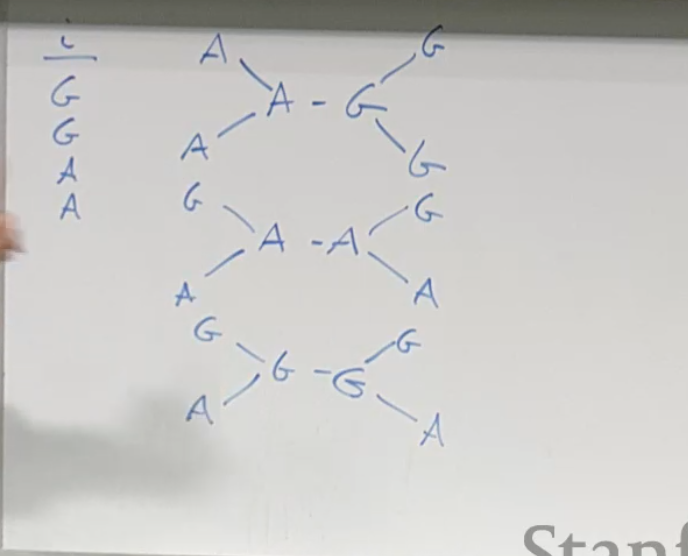 i
G
G
A
A
A G
A - G
A G
G G
A - A
A A
G G
G - G
A A
Stanf